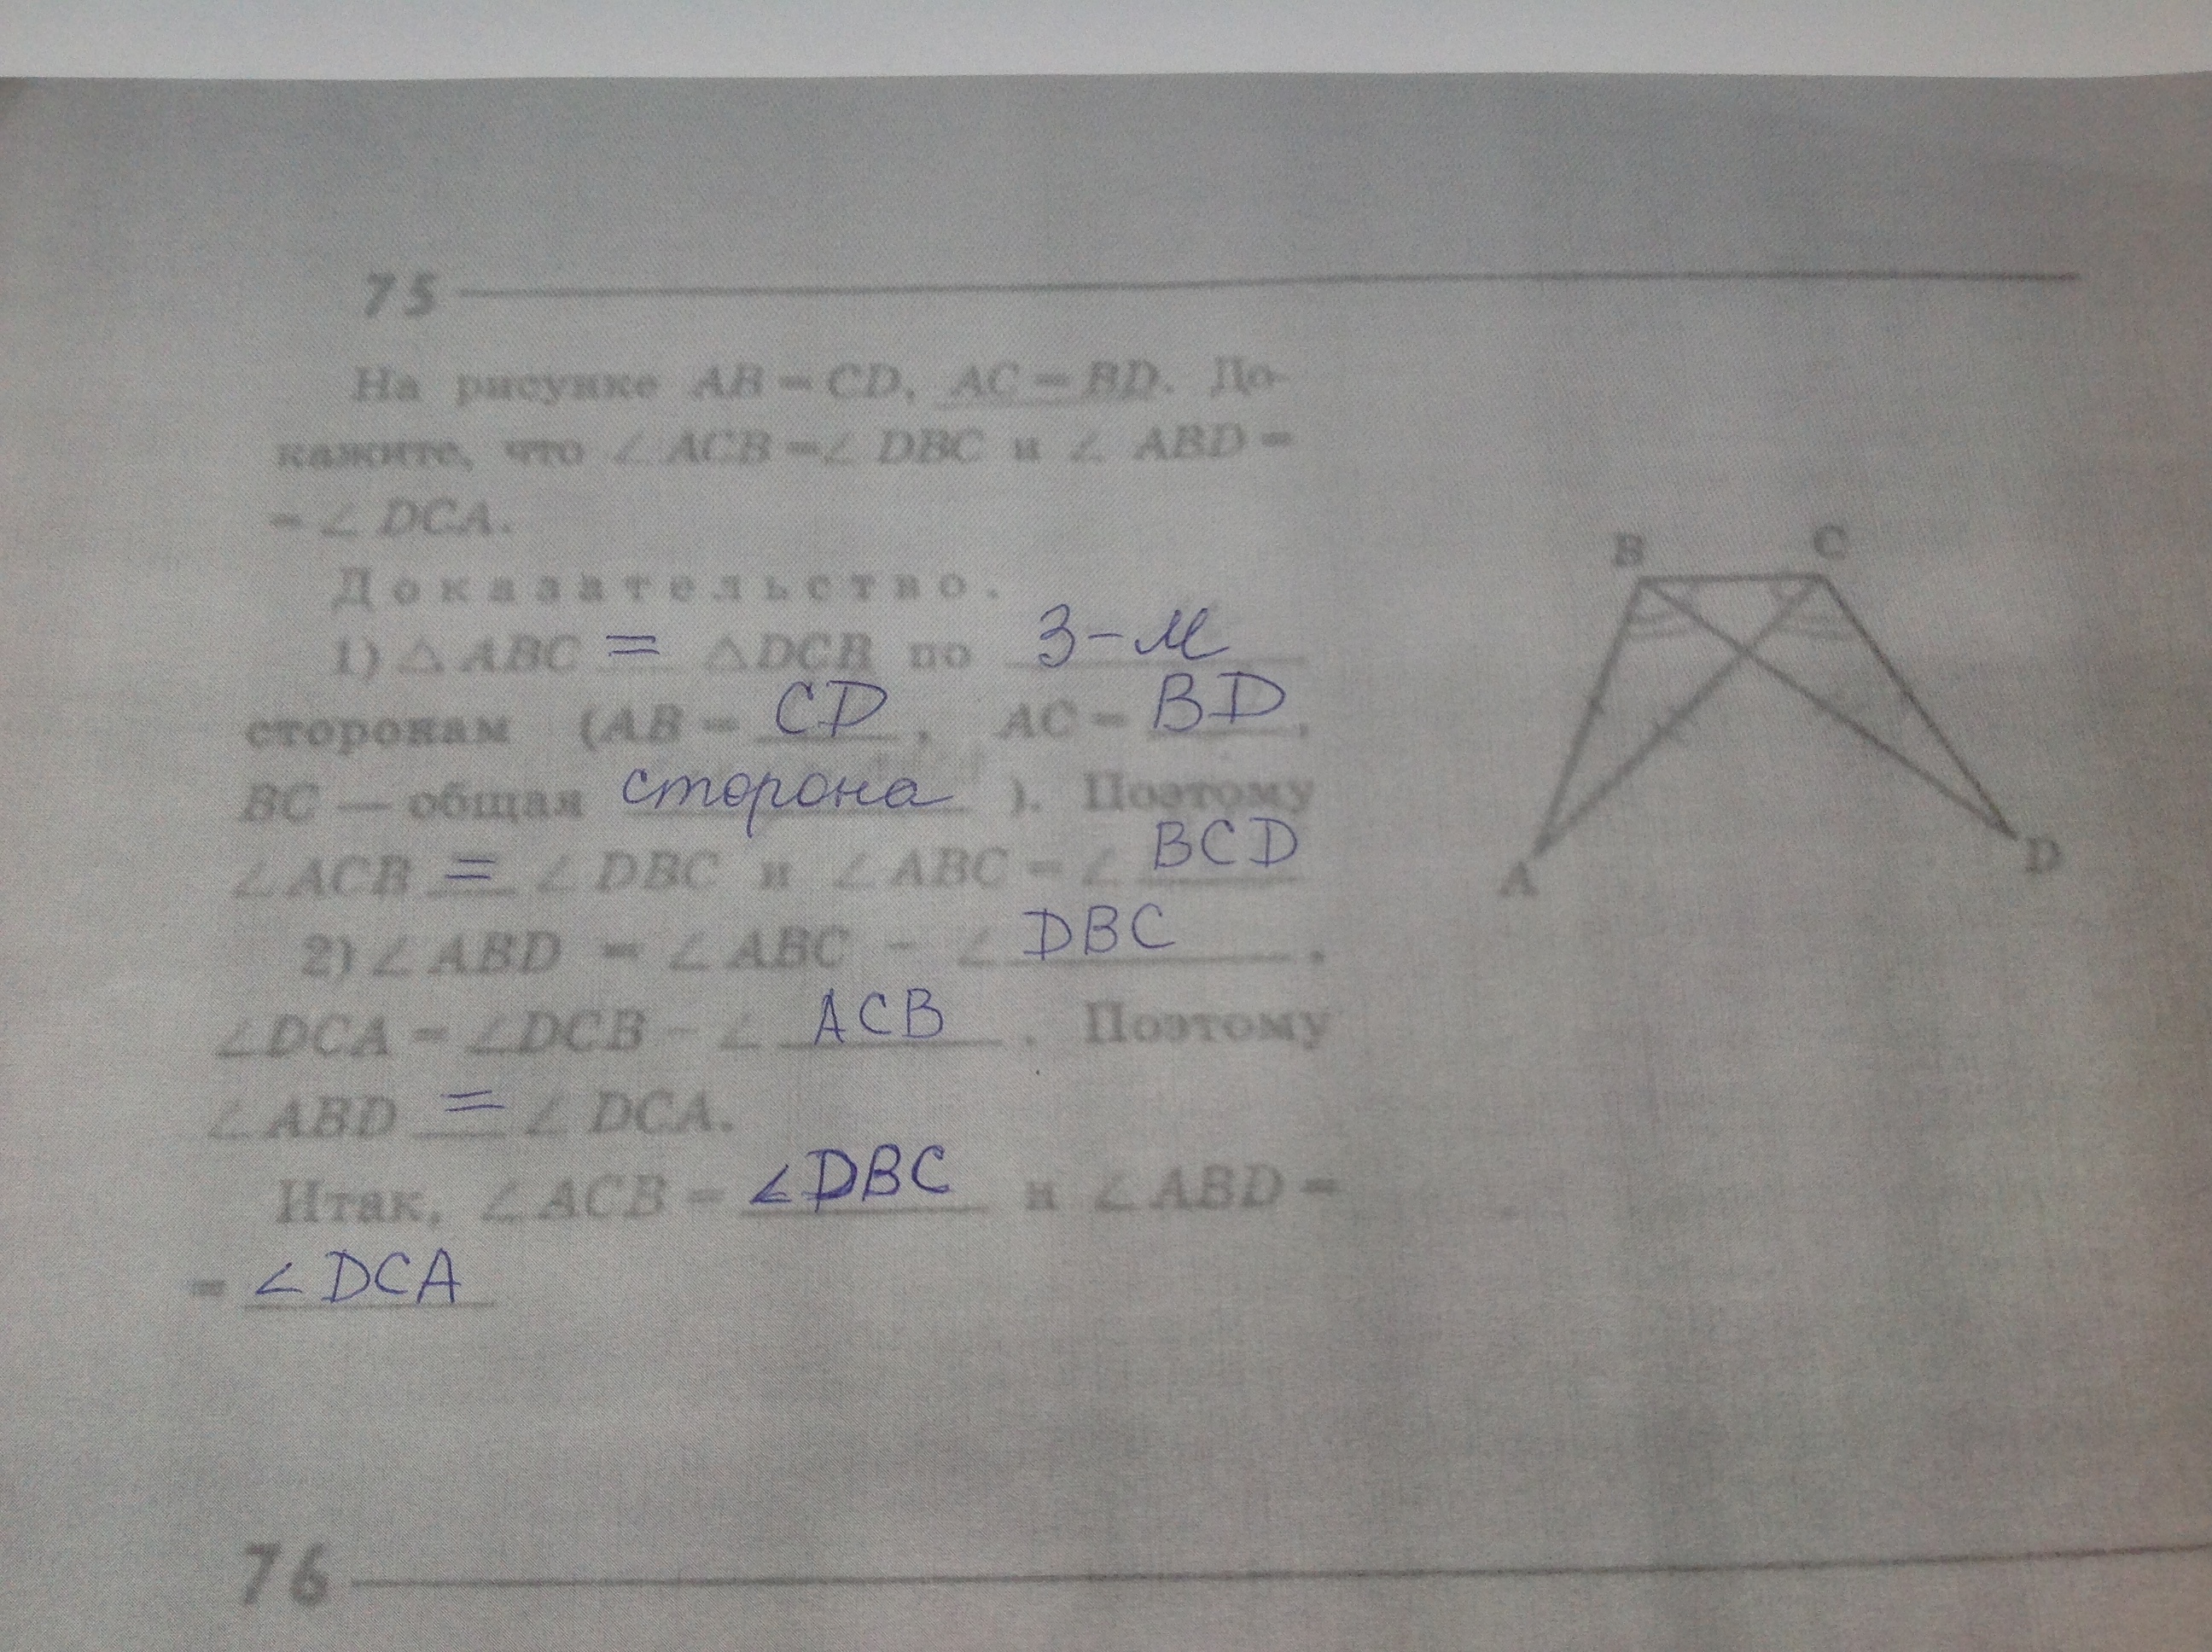 75
На рисунке AB = CD, AC = BD. До-
кажите, что ∠ ACB =∠ DBC и ∠ ABD =
= ∠ DCA.
Доказательство.
1) △ ABC = △DCB по 3-м
сторонам (AB = CD, AC = BD,
BC — общая сторона ). Поэтому
∠ ACB = ∠ DBC и ∠ ABC = ∠ BCD
2) ∠ ABD = ∠ ABC - ∠ DBC ,
∠DCA = ∠DCB - ∠ ACB . Поэтому
∠ ABD = ∠ DCA.
Итак, ∠ ACB = ∠DBC и ∠ ABD =
= ∠ DCA
B C
A D
76